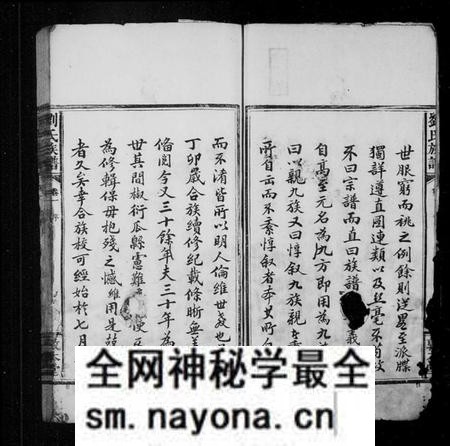 劉氏族譜
世服窮而祧之例餘則送畧至派牒
獨詳遵直圖連類以及丝毫不
不曰宗譜而直曰族譜
自髙至元名為九方即用為九
曰以親九族又曰惇叙九族親
所自而不紊惇叙者本
而不淆皆所以明人倫維世教也
丁卯歲合族續修紀載條晰無
倫閱今又三十餘年夫三十年為
世其間椒衍瓜緜憲難
為修輯保毋抱殘之憾維用是
者久矣幸合族校可經始於七月
劉氏族譜
全网神秘学最全
sm.nayona.cn